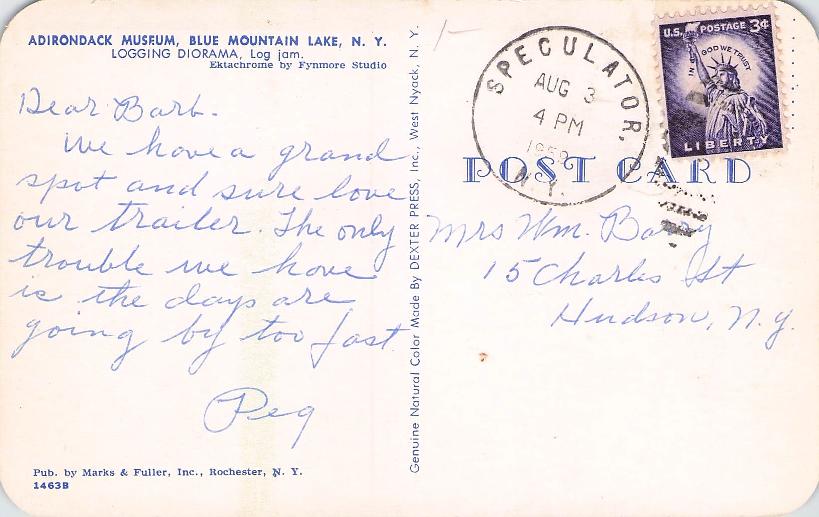 ADIRONDACK MUSEUM, BLUE MOUNTAIN LAKE, N. Y.
LOGGING DIORAMA, Log jam.
Ektachrome by Fynmore Studio
Dear Barb.
We have a grand
spot and sure love
our trailer. The only
trouble we have
is the days are
going by too fast
Peg
Pub. by Marks & Fuller, Inc., Rochester, N. Y.
1463B
Genuine Natural Color Made By DEXTER PRESS, Inc., West Nyack, N. Y.
1-
SPECULATOR,
AUG 3
4 PM
N.Y.
U.S. POSTAGE 3¢
IN GOD WE TRUST
LIBERTY
POST CARD
Mrs Wm. Barry
15 Charles St
Hudson, N.Y.